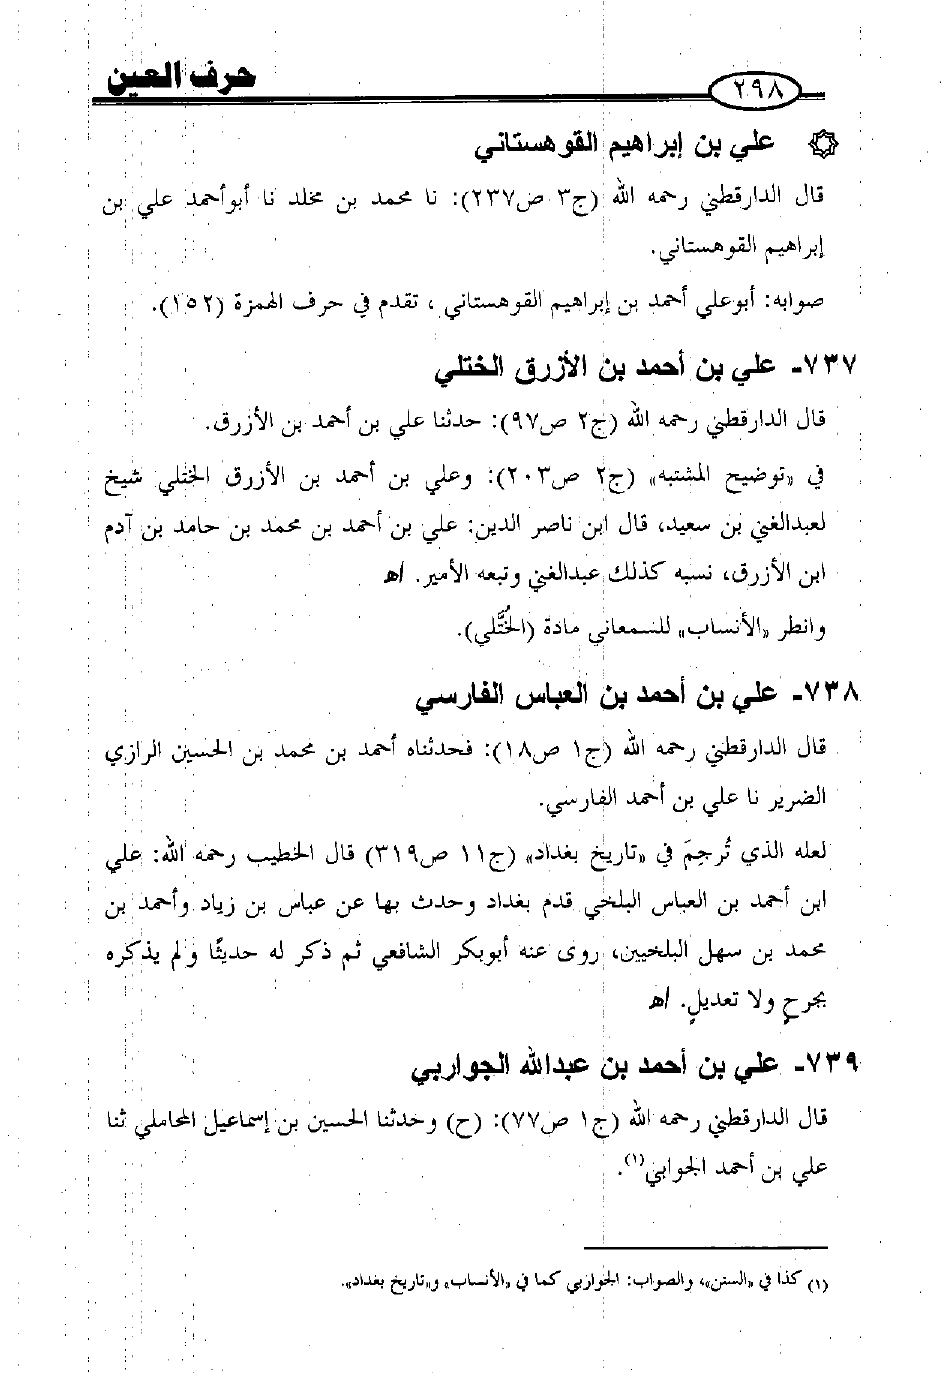 ٢٩٨ حرف العين
علي بن إبراهيم القوهستاني
قال الدارقطني رحمه الله (ج٣ ص٢٣٧): نا محمد بن مخلد نا أبوأحمد علي بن
إبراهيم القوهستاني.
صوابه: أبوعلي أحمد بن إبراهيم القوهستاني ، تقدم في حرف الهمزة (١٥٢).
٧٣٧- علي بن أحمد بن الأزرق الختلي
قال الدارقطني رحمه الله (ج٢ ص٩٧): حدثنا علي بن أحمد بن الأزرق.
في «توضيح المشتبه» (ج٢ ص٢٠٣): وعلي بن أحمد بن الأزرق الختلي شيخ
لعبدالغني بن سعيد، قال ابن ناصر الدين: علي بن أحمد بن محمد بن حامد بن آدم
ابن الأزرق، نسبه كذلك عبدالغني وتبعه الأمير. اﻫ
وانظر «الأنساب» للسمعاني مادة (الخُتَّلي).
٧٣٨- علي بن أحمد بن العباس الفارسي
قال الدارقطني رحمه الله (ج١ ص١٨): فحدثناه أحمد بن محمد بن الحسين الرازي
الضرير نا علي بن أحمد الفارسي.
لعله الذي تُرجِمَ في «تاريخ بغداد» (ج١١ ص٣١٩) قال الخطيب رحمه الله: علي
ابن أحمد بن العباس البلخي قدم بغداد وحدث بها عن عباس بن زياد وأحمد بن
محمد بن سهل البلخيين، روى عنه أبوبكر الشافعي ثم ذكر له حديثًا ولم يذكره
بجرحٍ ولا تعديلٍ. اﻫ
٧٣٩- علي بن أحمد بن عبدالله الجواربي
قال الدارقطني رحمه الله (ج١ ص٧٧): (ح) وحدثنا الحسين بن إسماعيل المحاملي ثنا
علي بن أحمد الجوابي(١).
(١) كذا في «السنن»، والصواب: الجواربي كما في «الأنساب» و«تاريخ بغداد».